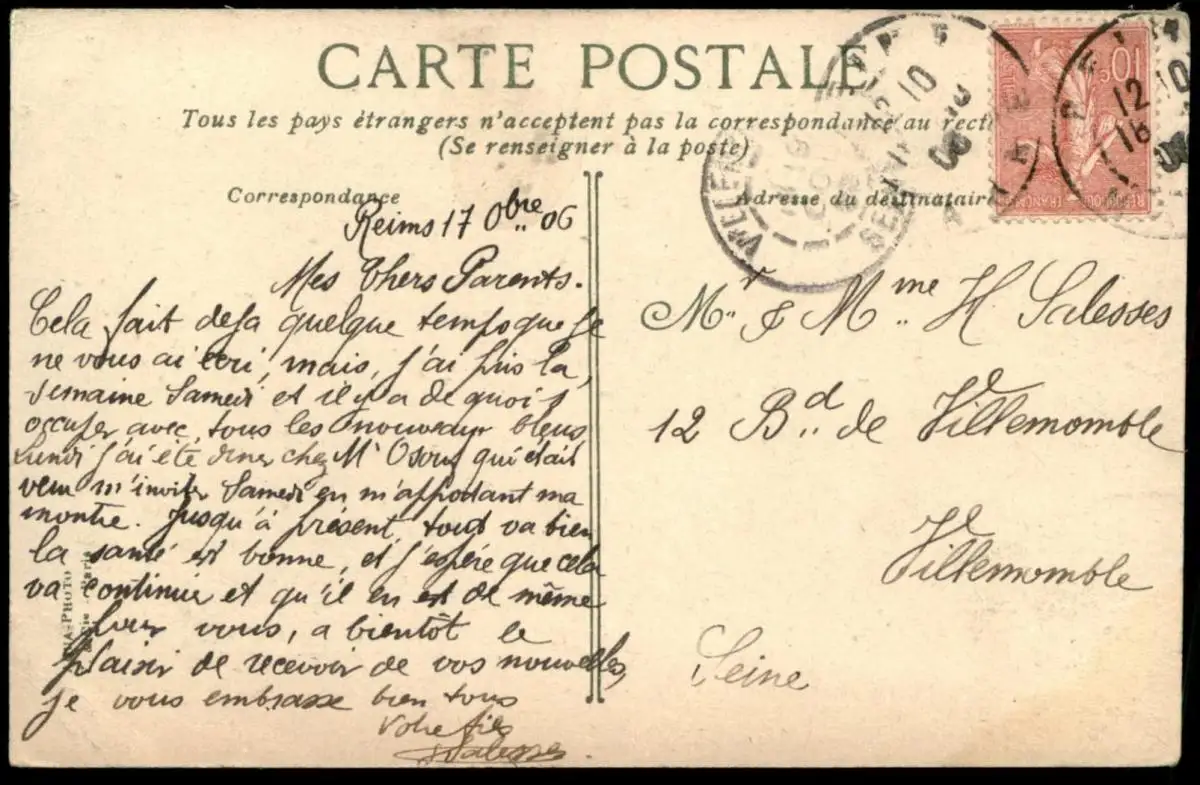 CARTE POSTALE
Tous les pays étrangers n'acceptent pas la correspondance au recto
(Se renseigner à la poste)
Correspondance
Adresse du destinataire
Reims 17 Obre 06
Mes Chers Parents.
Cela fait deja quelque temps que je
ne vous ai ecri, mais, j'ai pris la
semaine Samedi et il y a de quoi s'
occuper avec tous les nouveaux bleus
Lundi j'ai été diner chez Mr Osouf qui était
venu m'inviter Samedi en m'apportant ma
montre. Jusqu'à présent tout va bien
la santé est bonne, et j'espère que cela
va continuer et qu'il en est de même
pour vous, a bientôt le
plaisir de recevoir de vos nouvelles,
je vous embrasse bien tous
Votre fils
Mr & Mme H Salesses
12 Bd de Villemomble
Villemomble
Seine
10c
REPUBLIQUE FRANÇAISE
REIMS
12 10
06